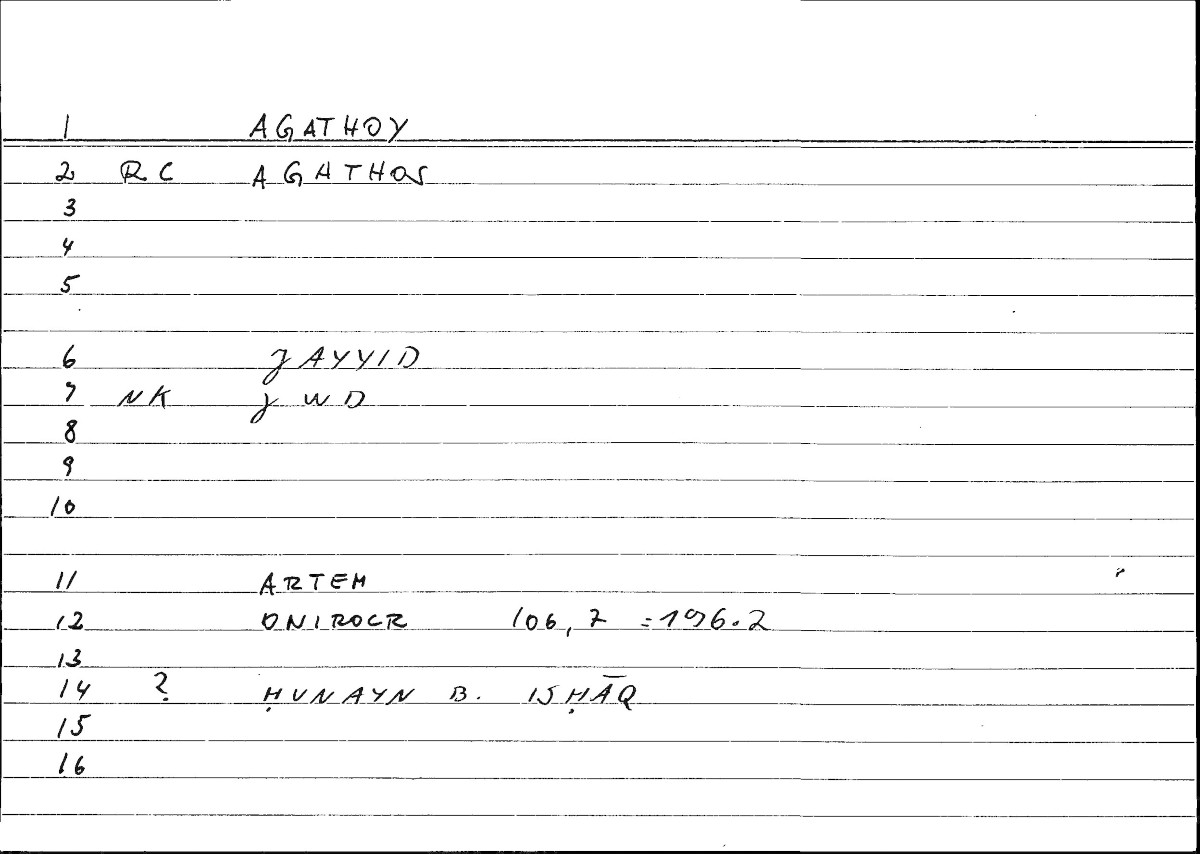 1 AGATHOY
2 RC AGATHOS
3
4
5
6 ǧAYYID
7 NK ǧWD
8
9
10
11 ARTEM
12 ONIROCR 106,7 =196.2
13
14 ? ḤUNAYN B. ISḤĀQ
15
16